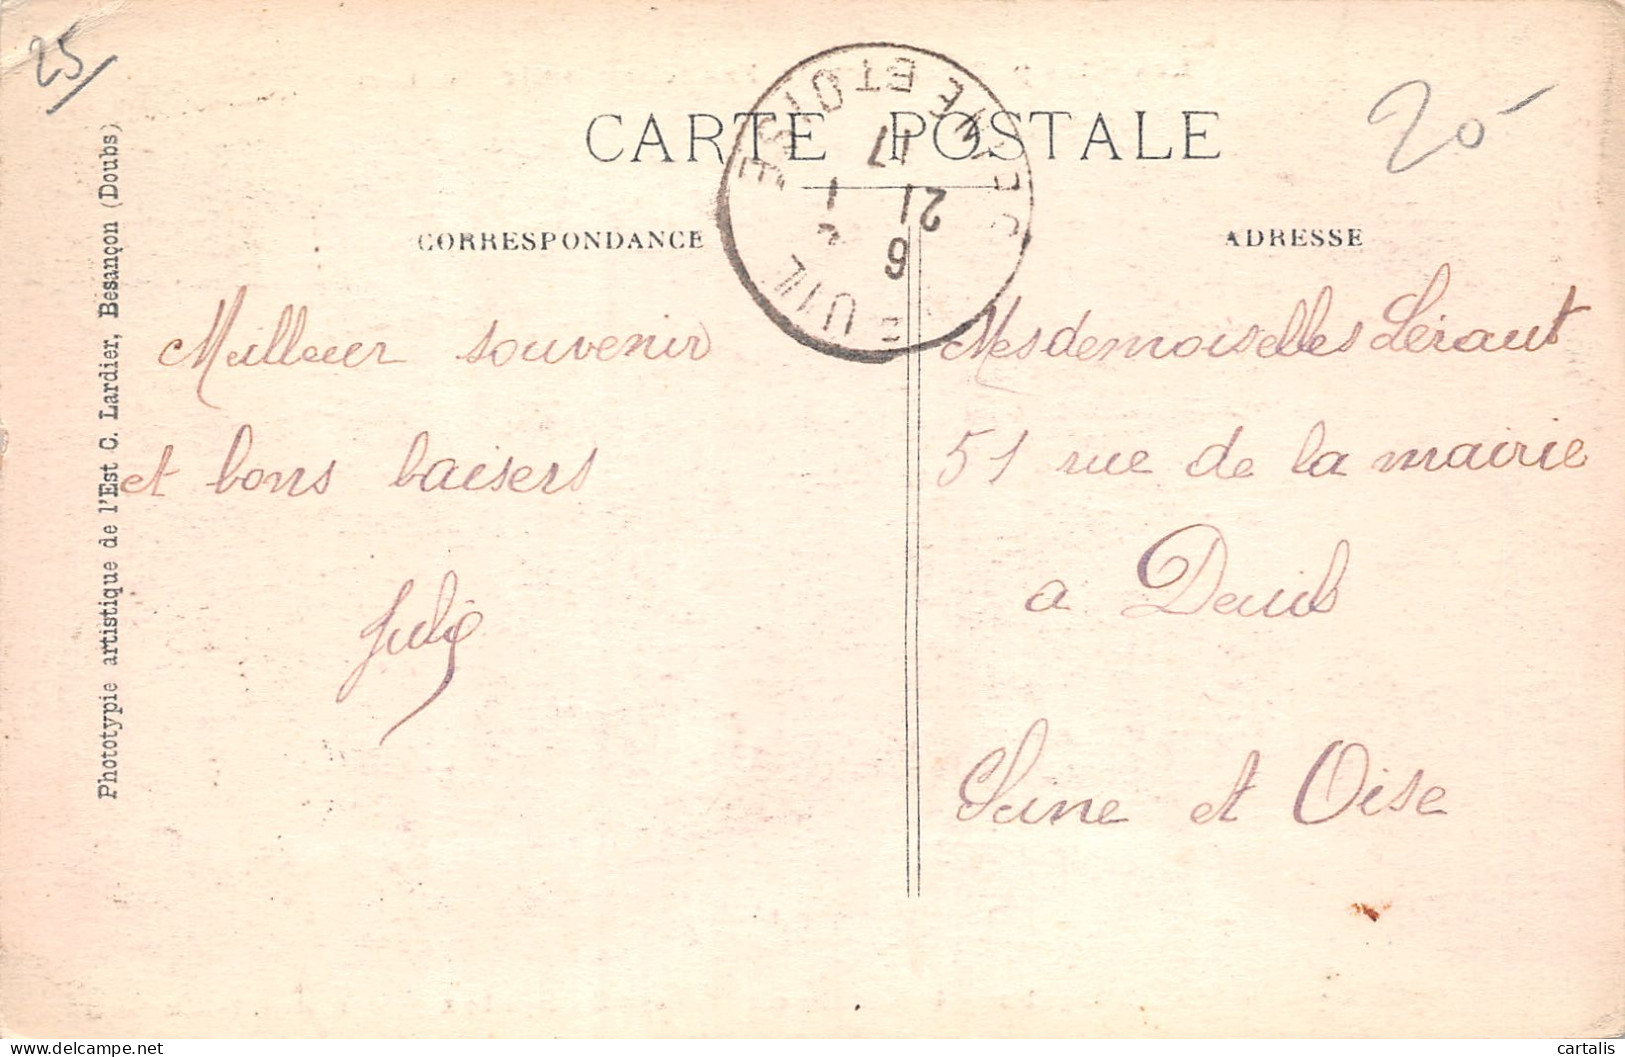 25
CARTE POSTALE
20
CORRESPONDANCE
ADRESSE
Meilleur souvenir
et bons baisers
Julie
Mesdemoiselles Léraut
51 rue de la mairie
a Deuil
Seine et Oise
DEUIL
SEINE ET OISE
17
21
6
Phototypie artistique de l'Est C. Lardier, Besançon (Doubs)
cartalis
delcampe.net